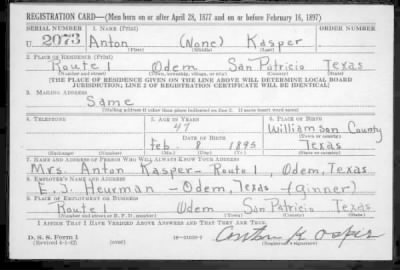 REGISTRATION CARD—(Men born on or after April 28, 1877 and on or before February 16, 1897)
SERIAL NUMBER 1. NAME (Print) ORDER NUMBER
U 2073 Anton (None) Kasper
(First) (Middle) (Last)
2. PLACE OF RESIDENCE (Print)
Route 1 Odem San Patricio Texas
(Number and street) (Town, township, village, or city) (County) (State)
[THE PLACE OF RESIDENCE GIVEN ON THE LINE ABOVE WILL DETERMINE LOCAL BOARD
JURISDICTION; LINE 2 OF REGISTRATION CERTIFICATE WILL BE IDENTICAL]
3. MAILING ADDRESS
Same
(Mailing address if other than place indicated on line 2. If same insert word same)
4. TELEPHONE 5. AGE IN YEARS 6. PLACE OF BIRTH
47 Williamson County
DATE OF BIRTH (Town or county)
Feb. 8 1895 Texas
(Exchange) (Number) (Mo.) (Day) (Yr.) (State or country)
7. NAME AND ADDRESS OF PERSON WHO WILL ALWAYS KNOW YOUR ADDRESS
Mrs. Anton Kasper - Route 1, Odem, Texas
8. EMPLOYER'S NAME AND ADDRESS
E. J. Heurman - Odem, Texas - (ginner)
9. PLACE OF EMPLOYMENT OR BUSINESS
Route 1 Odem San Patricio Texas
(Number and street or R. F. D. number) (Town) (County) (State)
I AFFIRM THAT I HAVE VERIFIED ABOVE ANSWERS AND THAT THEY ARE TRUE.
D. S. S. Form 1
(Revised 4-1-42) (over)
(Registrant's signature)